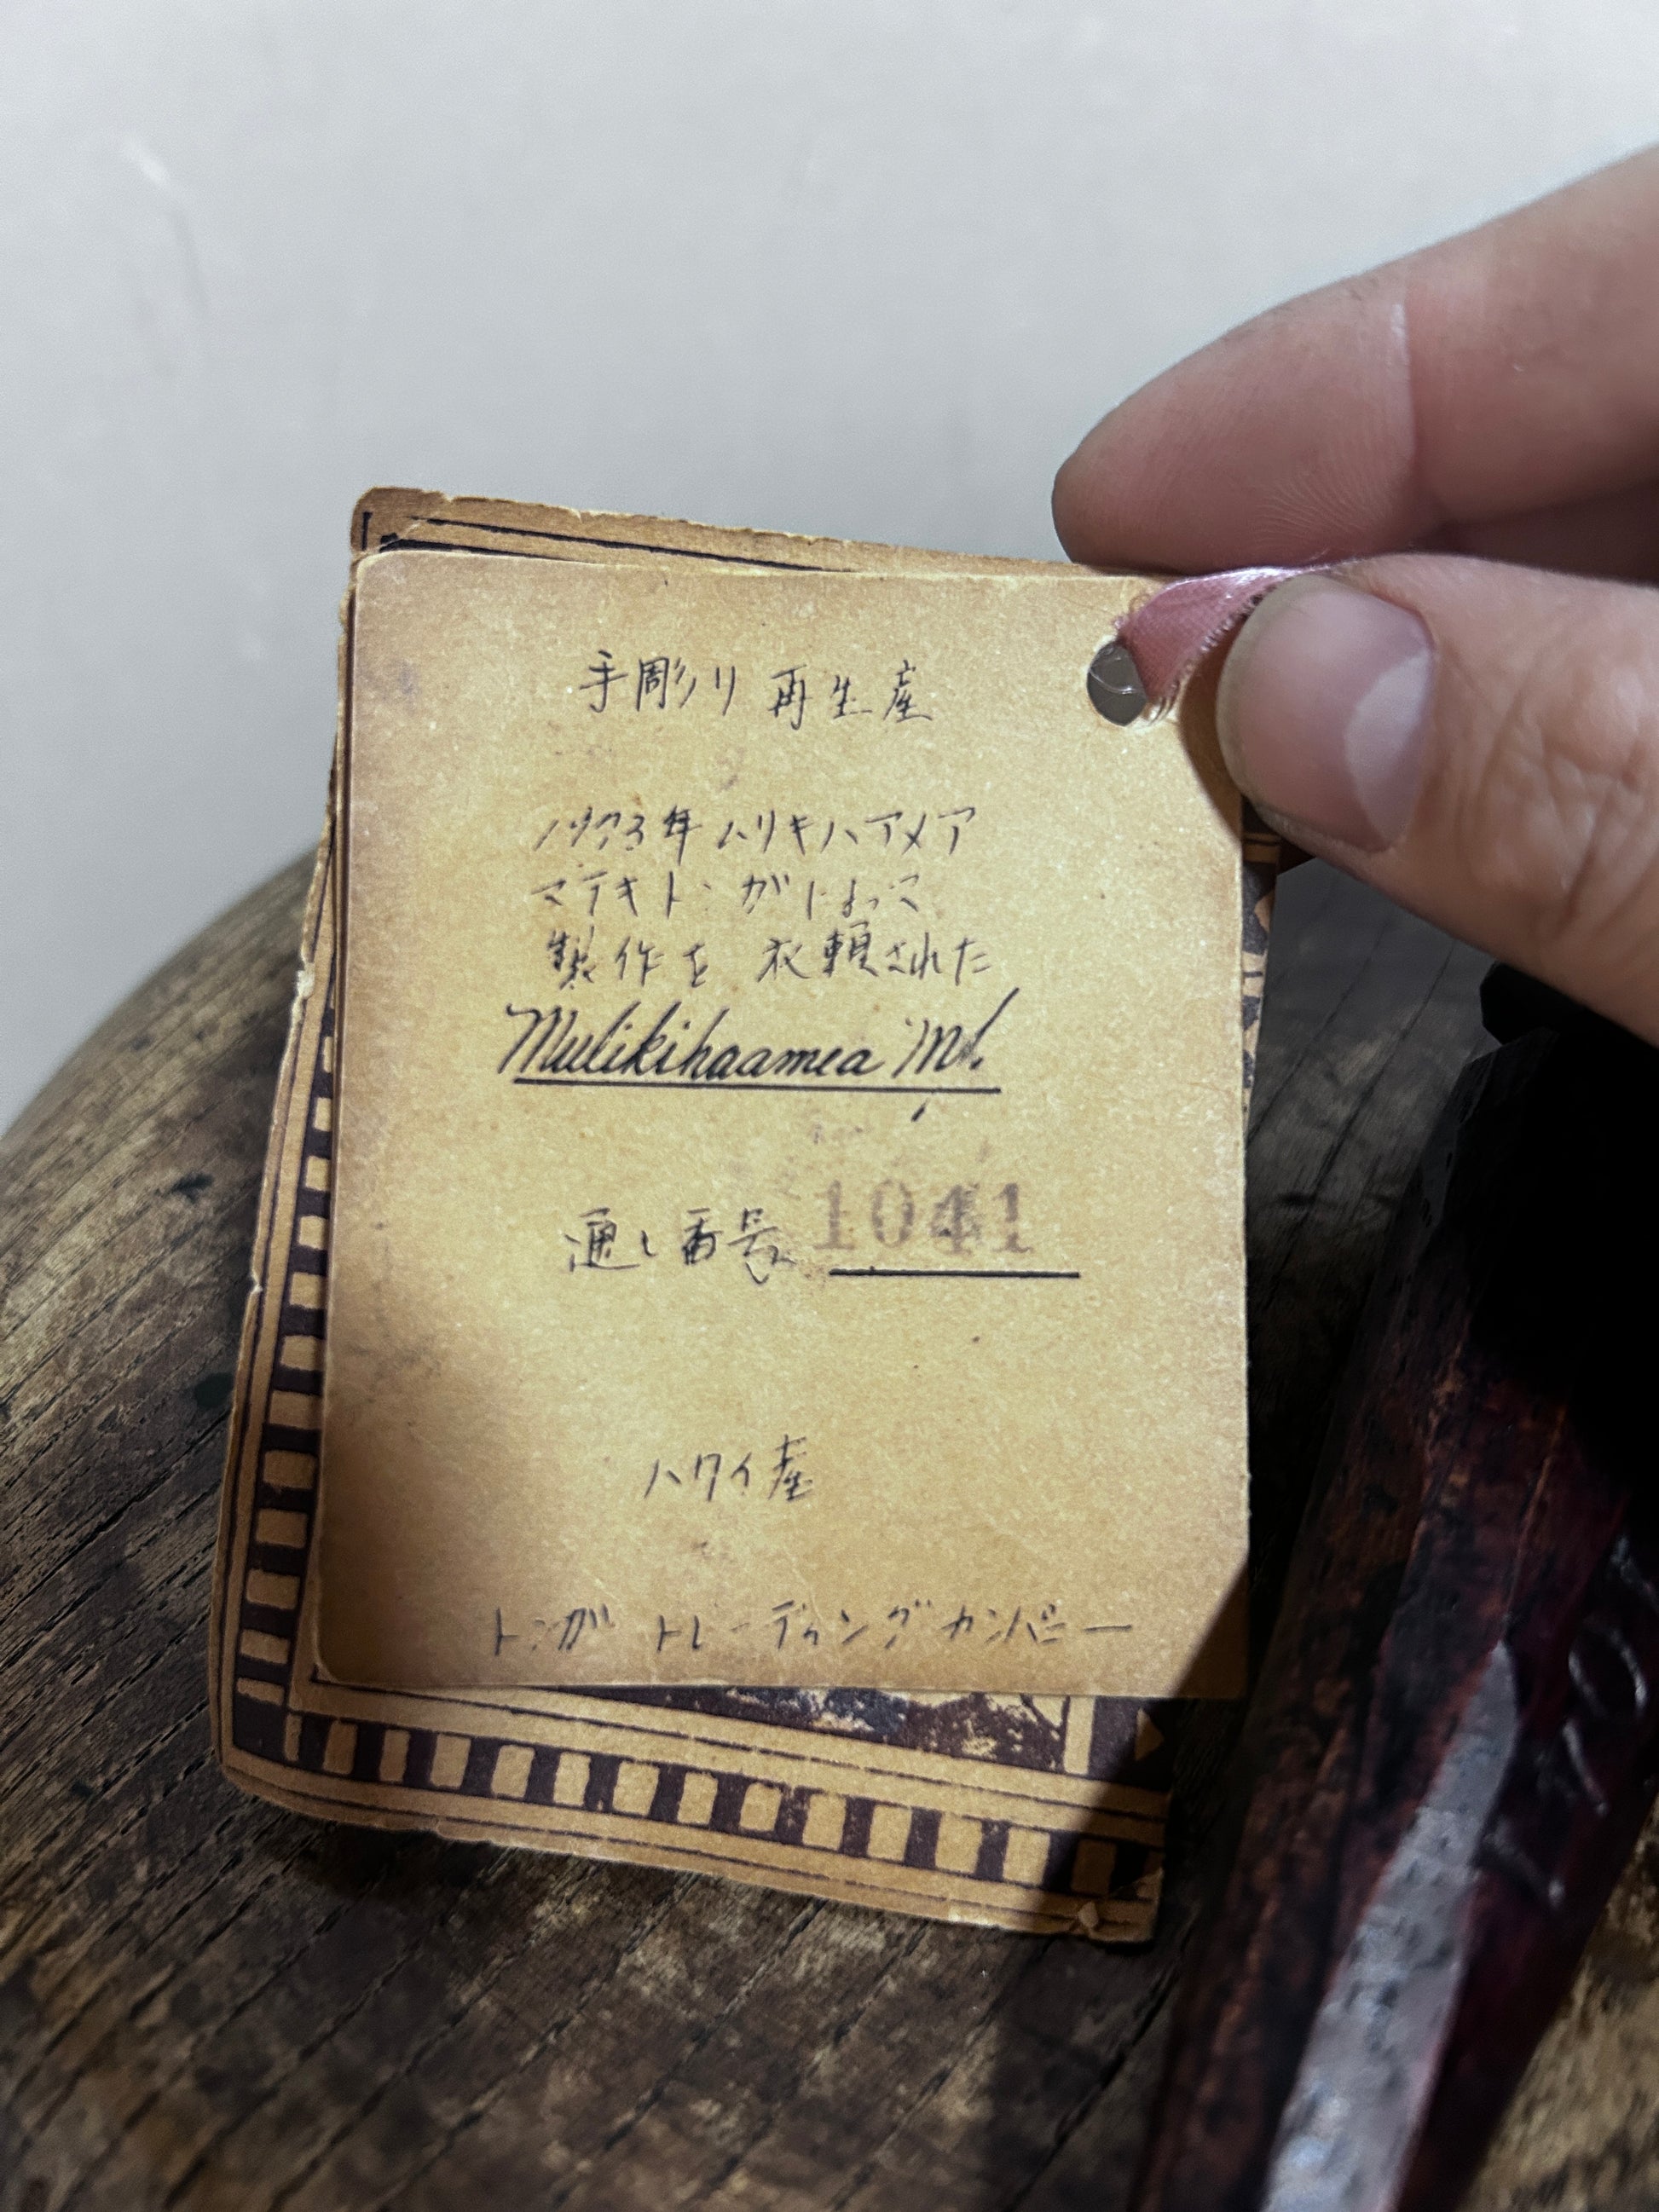 手彫り 再生産
1973年 ムリキハアメア
マテキトンガによって
製作を 依頼された
Mulikihaamea M.
通し番号 1041
ハワイ産
トンガ トレーディングカンパニー